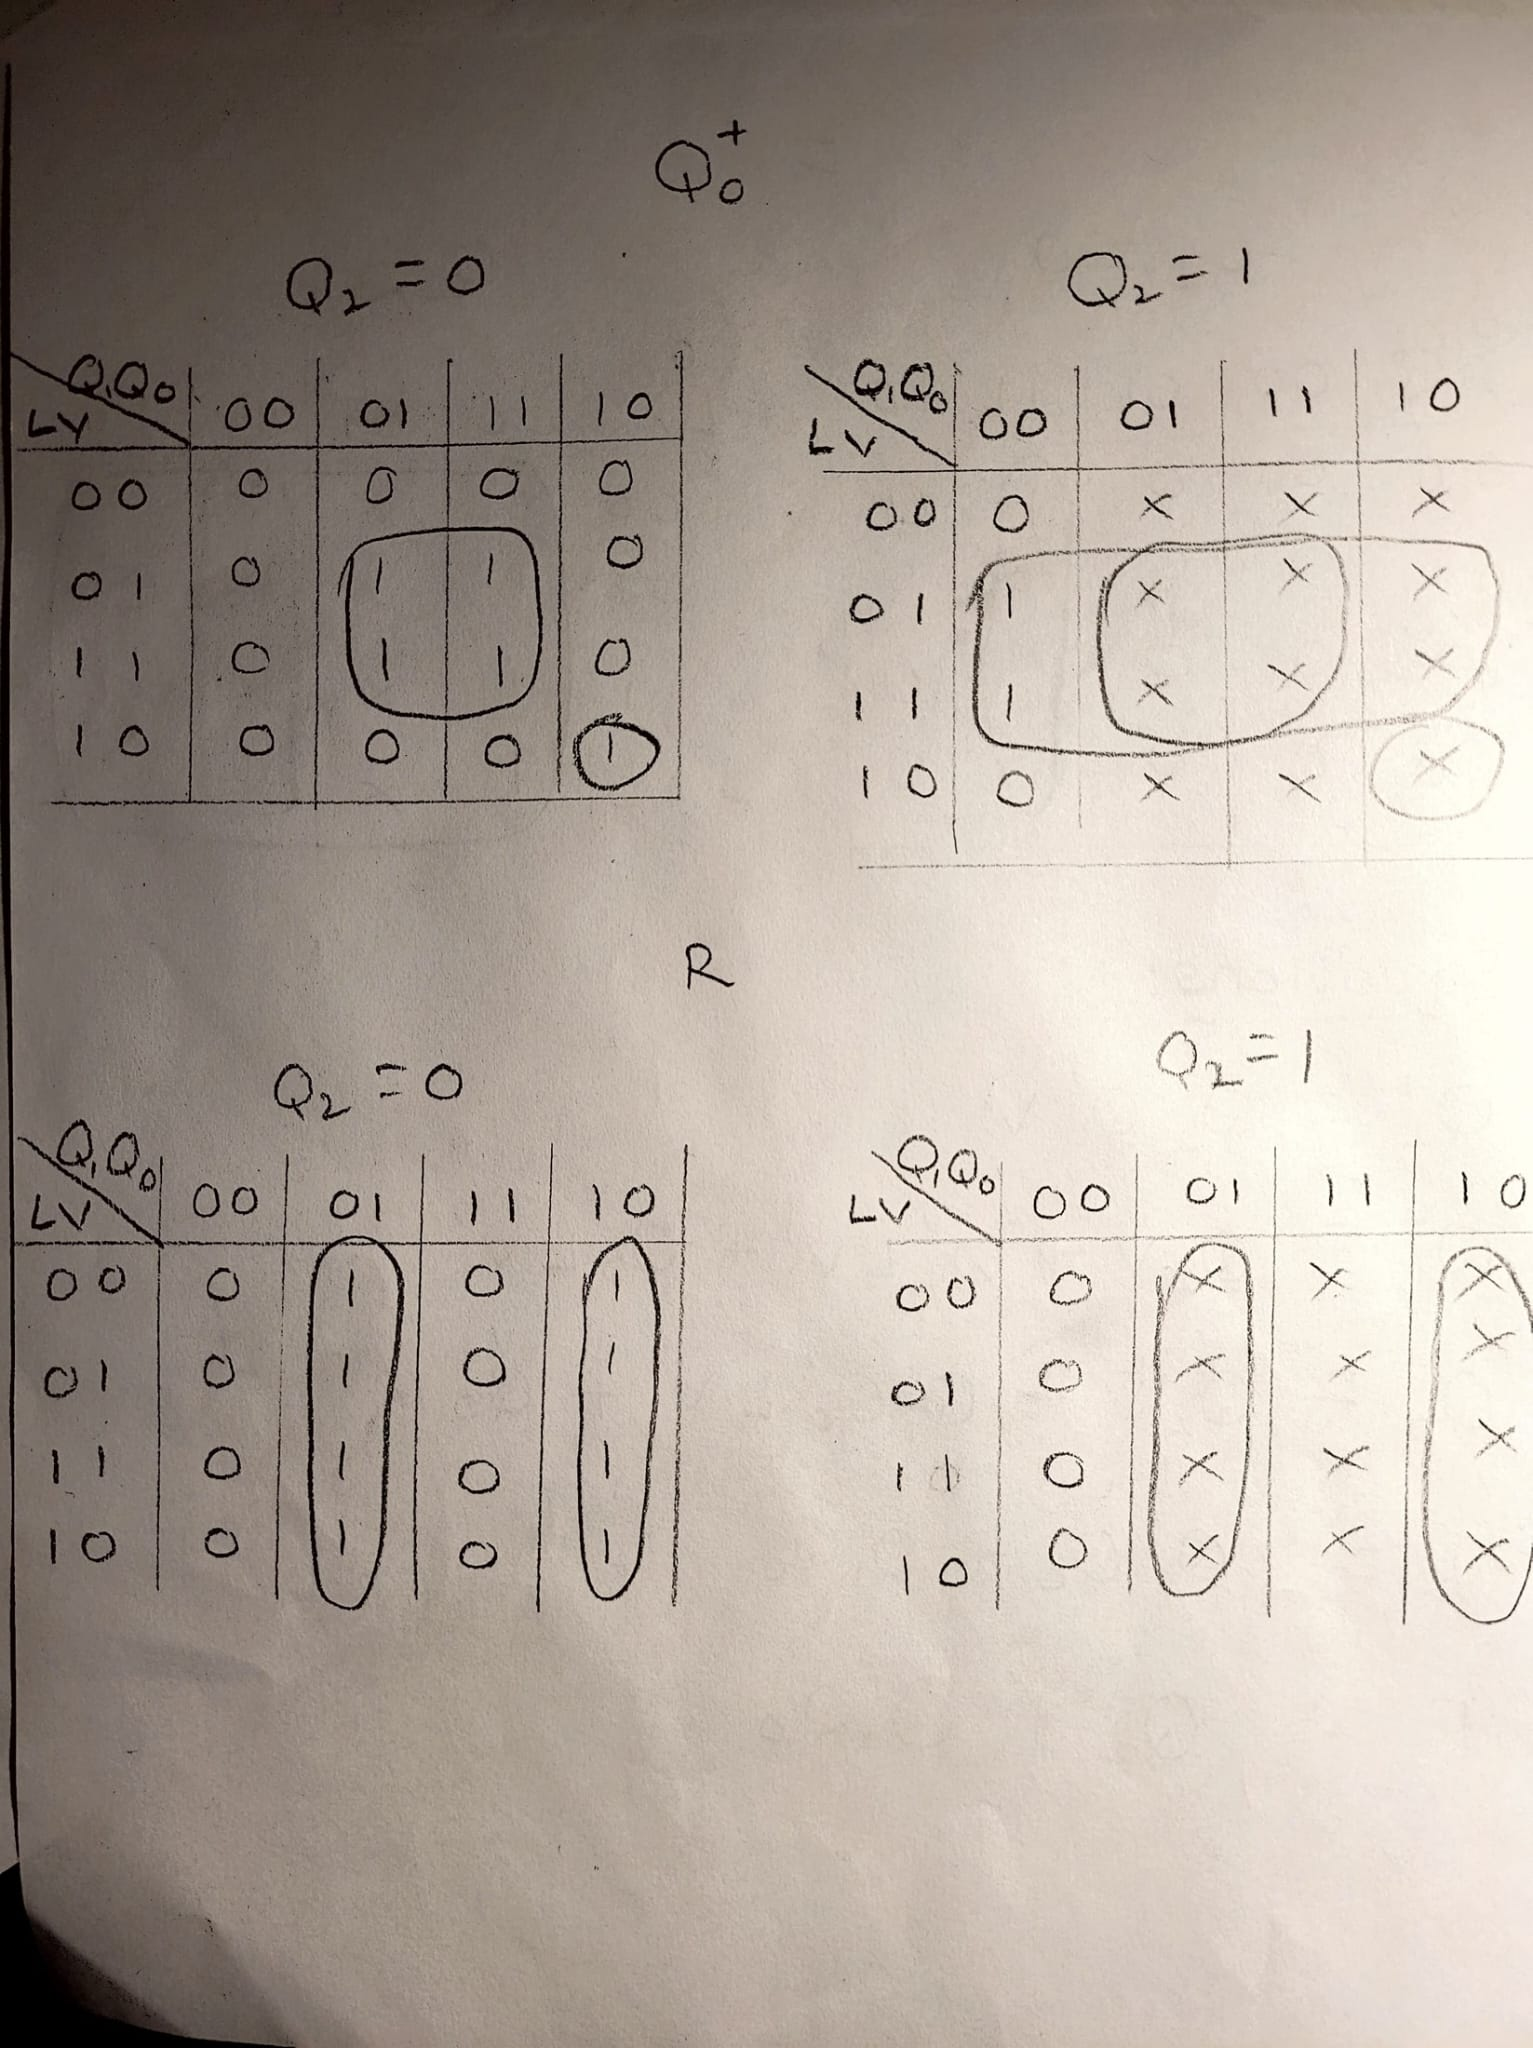 Q₀⁺
Q₂ = 0
Q₁Q₀
LV
00 01 11 10
00 0 0 0 0
01 0 1 1 0
11 0 1 1 0
10 0 0 0 1
Q₂ = 1
Q₁Q₀
LV
00 01 11 10
00 0 X X X
01 1 X X X
11 1 X X X
10 0 X X X
R
Q₂ = 0
Q₁Q₀
LV
00 01 11 10
00 0 1 0 1
01 0 1 0 1
11 0 1 0 1
10 0 1 0 1
Q₂ = 1
Q₁Q₀
LV
00 01 11 10
00 0 X X X
01 0 X X X
11 0 X X X
10 0 X X X